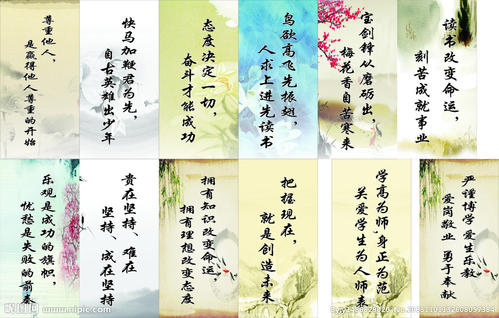 尊重他人,
是赢得他人尊重的开始
快马加鞭君为先,
自古英雄出少年
态度决定一切,
奋斗才能成功
鸟欲高飞先振翅,
人求上进先读书
宝剑锋从磨砺出,
梅花香自苦寒来
读书改变命运,
刻苦成就事业
乐观是成功的旗帜,
忧愁是失败的前奏
贵在坚持、难在
坚持、成在坚持
拥有知识改变命运,
拥有理想改变态度
把握现在,
就是创造未来
学高为师,身正为范
关爱学生为人师表
严谨博学 爱生乐教
爱岗敬业 勇于奉献
www.nipic.com